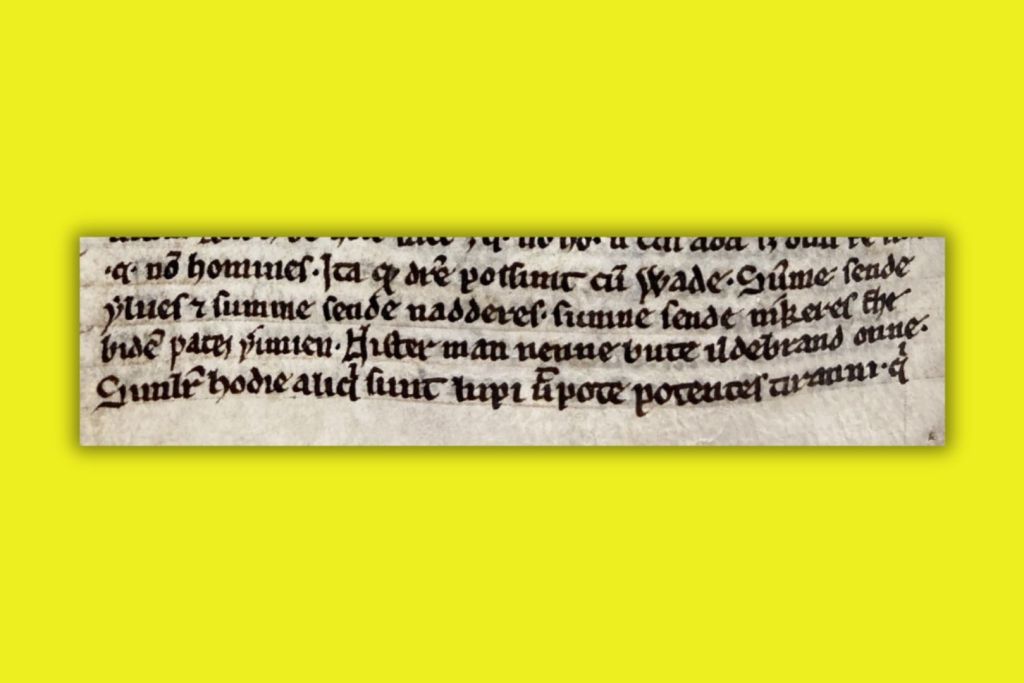 .q. nō homines. Ita qđ dr̄e possunt cū Wade. Sūme sende
ẏlues ⁊ sumne sende nadderes. sumne sende nikeres the
bidē pates ẏmien. Nister man nenne bute ildebrand onne.
Simlr̄ hodie aliqͥ sunt lupi ūpote potentes tiranni. qͥ